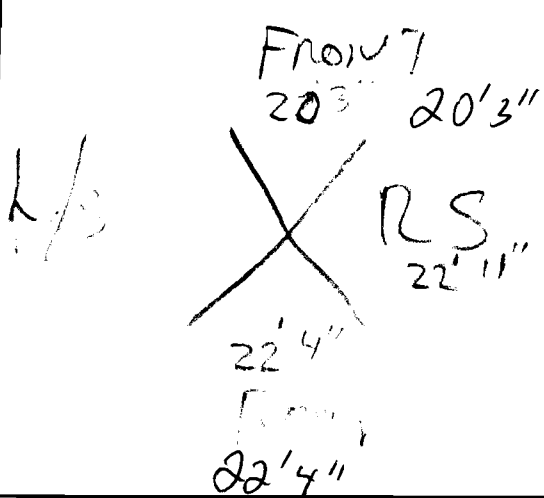 FRONT
20'3" 20'3"
L/S
RS
22'11"
22'4"
22'4"